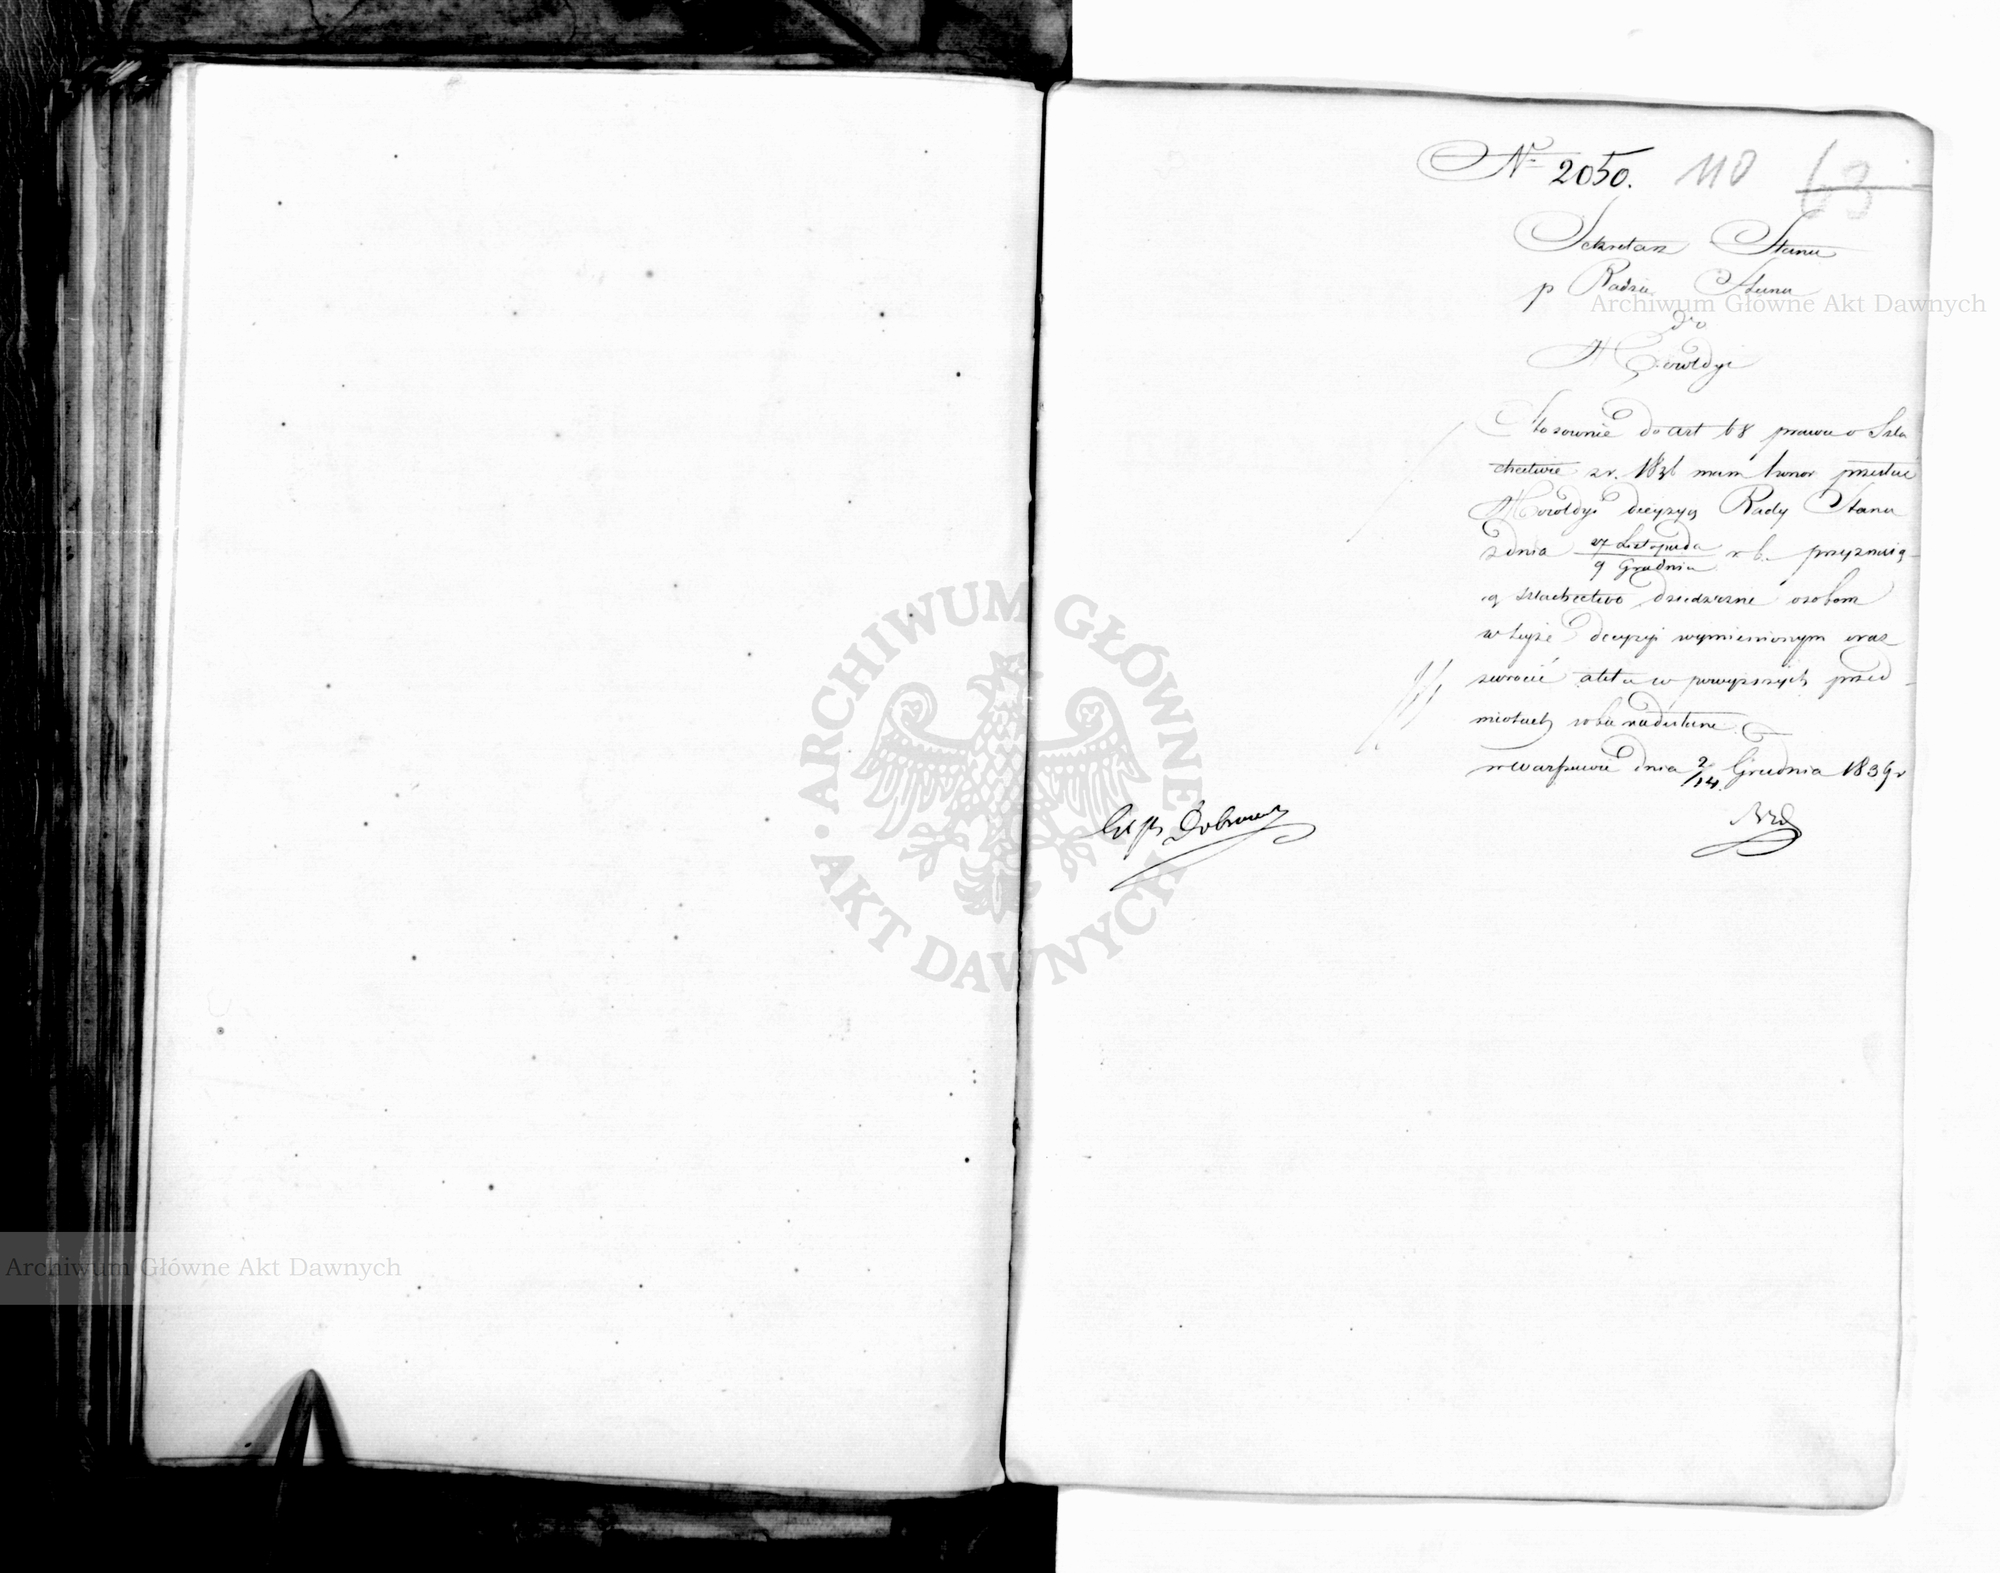 Nr 2050. 110 63
Sekretarz Stanu
p Radzie Stanu
Archiwum Główne Akt Dawnych
do
Heroldyi
Stosownie do art 68 prawa o Szla
chectwie z r. 1836 mam honor przesłać
Heroldyi decyzyą Rady Stanu
z dnia 27 Listopada / 9 Grudnia r b. przyznaią
cą szlachectwo dziedziczne osobom
w teyże decyzyi wymienionym oraz
zwrócić akta w powyższych przed
miotach sobie nadesłane.
w Warszawie dnia 2/14 Grudnia 1839 r
ARCHIWUM GŁÓWNE
AKT DAWNYCH
Archiwum Główne Akt Dawnych